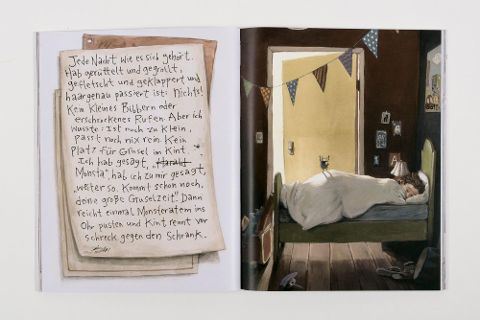 Jede Nacht wie es sich gehört.
Hab gerüttelt und gegrollt,
gefletscht und geklappert und
haargenau passiert ist: Nichts!
Kein kleines Bibbern oder
erschrockenes Rufen. Aber ich
wusste: Ist noch zu klein,
passt noch nix rein. Kein
Platz für Grusel im Kint.
Ich hab gesagt, „Harald
Monsta", hab ich zu mir gesagt,
„weiter so. Kommt schon noch,
deine große Gruselzeit." Dann
reicht einmal Monsteratem ins
Ohr pusten und Kint rennt vor
schreck gegen den Schrank.